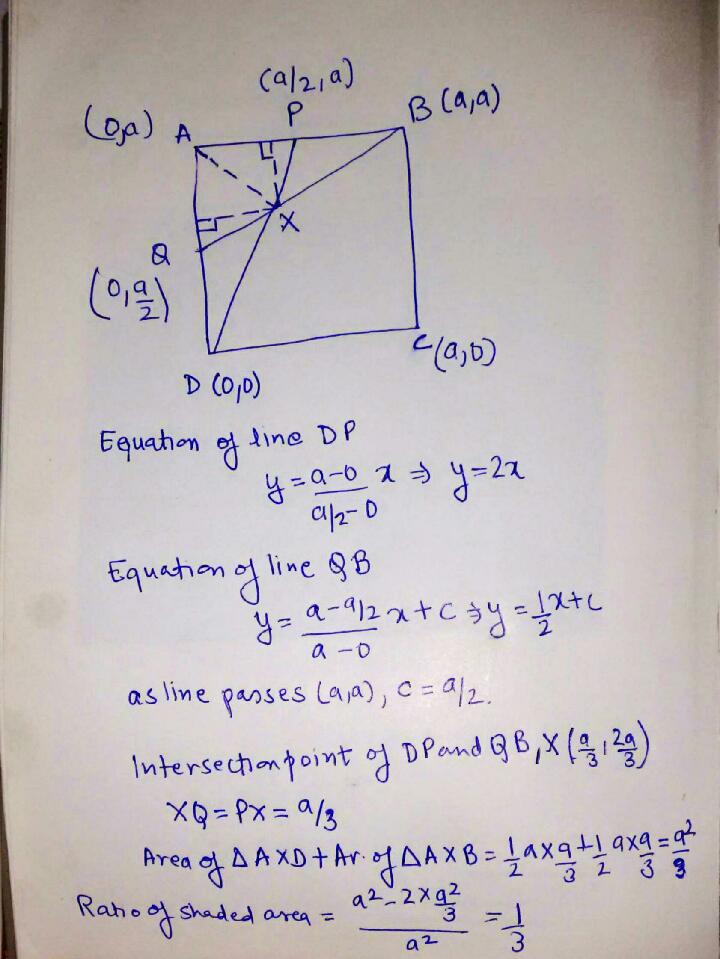 (a/2, a)
(0,a) A P B (a,a)
X
Q
(0, a/2)
D (0,0) C (a,0)
Equation of line DP
y = (a-0)/(a/2-0) x ⇒ y=2x
Equation of line QB
y = (a-a/2)/(a-0) x + c ⇒ y = 1/2 x + c
as line passes (a,a), c = a/2.
Intersection point of DP and QB, X (a/3, 2a/3)
XQ = PX = a/3
Area of ΔAXD + Ar. of ΔAXB = 1/2 a × a/3 + 1/2 a × a/3 = a²/3
Ratio of shaded area = (a² - 2 × a²/3)/a² = 1/3